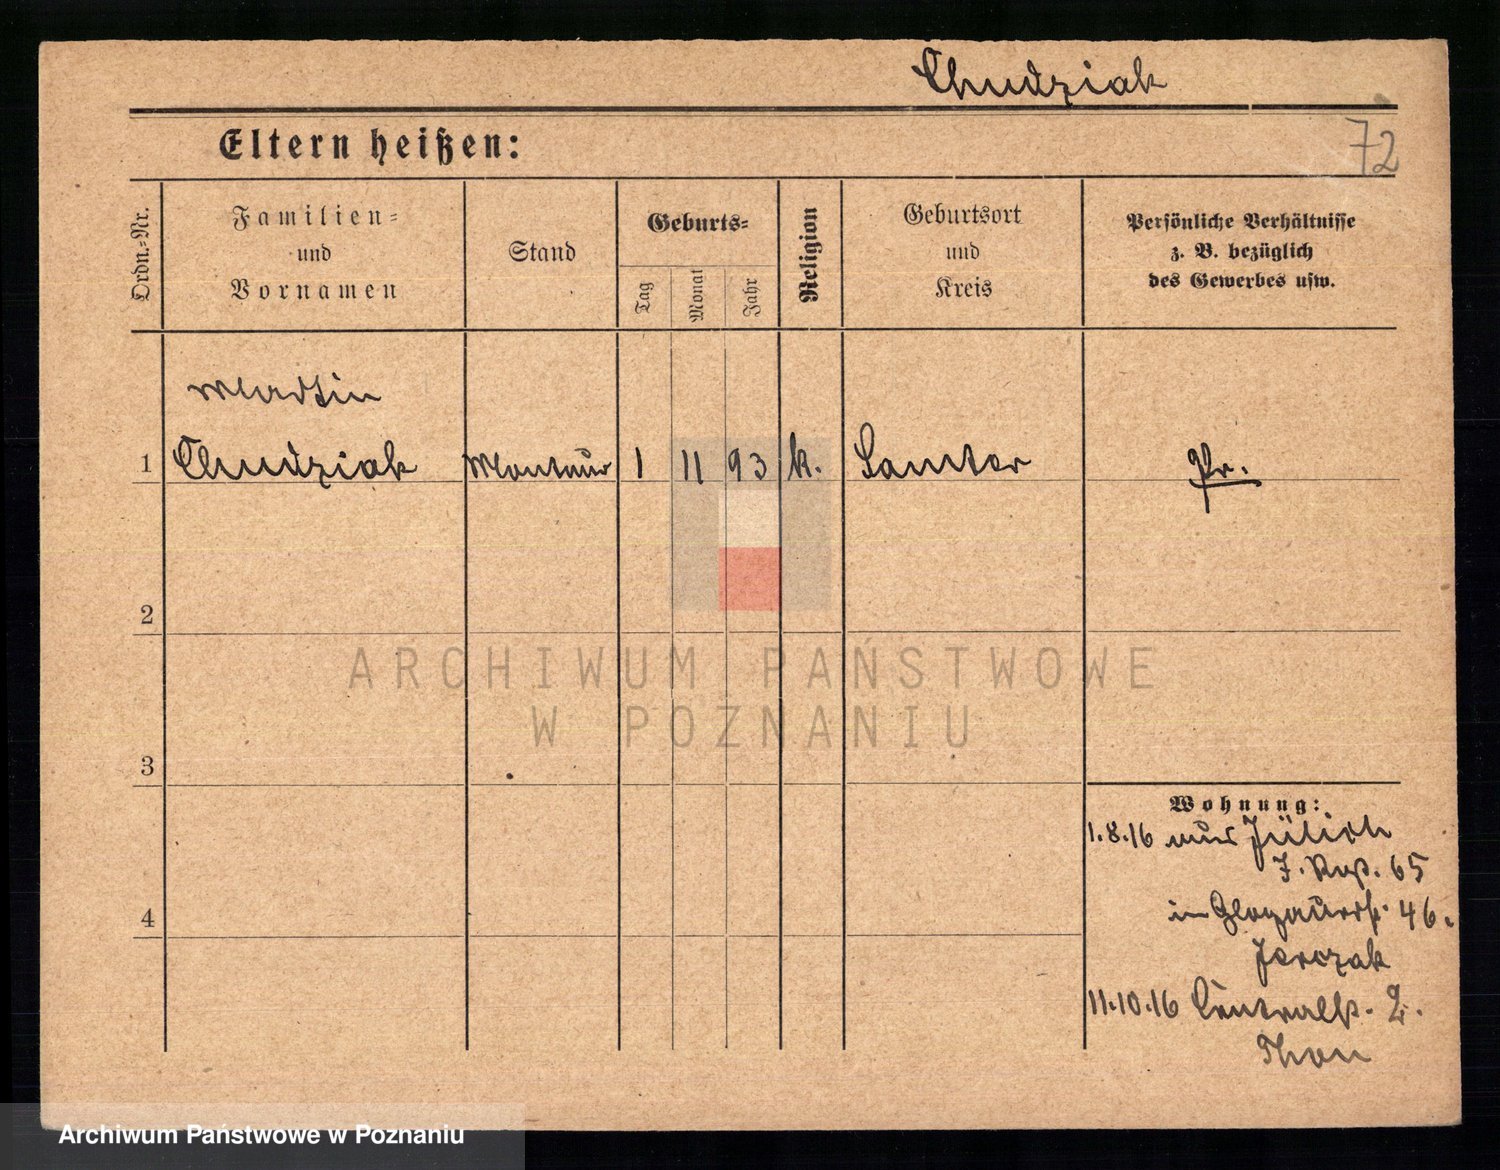 Chudziak
72
Eltern heißen:
Ordn.-Nr.
Familien-
und
Vornamen
Stand
Geburts-
Tag
Monat
Jahr
Religion
Geburtsort
und
Kreis
Persönliche Verhältnisse
z. B. bezüglich
des Gewerbes usw.
Martin
1 Chudziak Monteur 1 11 93 k. Samter Pr.
2
3
4
Wohnung:
1.8.16 aus Jülich
65
in Glogauerstr. 46.
11.10.16 Centralstr. 2.
Thon
ARCHIWUM PAŃSTWOWE
W POZNANIU
Archiwum Państwowe w Poznaniu